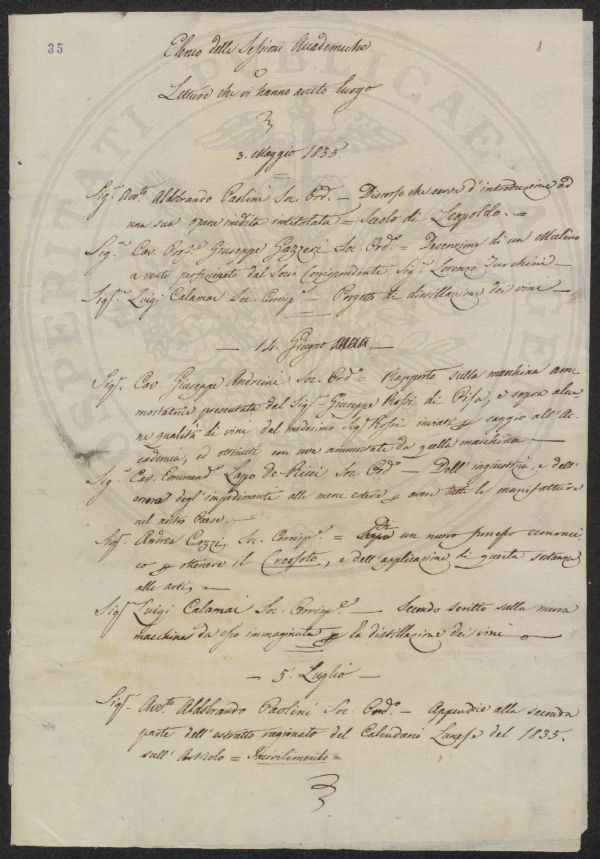 35
1
Elenco delle Sessioni Accademiche
e
Letture che vi hanno avuto luogo
3. Maggio 1835.
Sig.r Avv.to Aldobrando Paolini Soc. Ord. — Discorso che serve d'introduzione ad
una sua opera inedita intitolata = Secolo di Leopoldo. =
Sig.r Cav. Prof.e Giuseppe Gazzeri Soc. Ord.o = Descrizione di un Mulino
a vento perfezionato dal Socio Corrispondente Sig.r Lorenzo Turchini —
Sig.r Luigi Calamai Soc. Corrisp.e — Progetto di distillazione dei vini —
— 14. Giugno —
Sig.r Cav. Giuseppe Andreini Soc. Ord.o = Rapporto sulla macchina am-
mostatoria presentata dal Sig.r Giuseppe Rossi di Pisa, e sopra alcu-
ne qualità di vini dal medesimo Sig.r Rossi inviati p saggio all'Ac-
cademia, ed ottenuti con uve ammostate da quella macchina —
Sig.r Cav. Commend.r Lapo De-Ricci Soc. Ord.o — Dell'ingiustizia, e dell'
errore degl'impedimenti alle merci estere p avere tutte le manifatture
nel nostro Paese. —
Sig.r Andrea Cozzi Soc. Corrisp.e = Sopra un nuovo processo economi-
co p ottenere il Creosoto, e dell'applicazione di questa sostanza
alle arti, —
Sig.r Luigi Calamai Soc. Corrisp.e — Secondo scritto sulla nuova
macchina da esso immaginata p la distillazione dei vini —
— 5. Luglio —
Sig.r Avv.to Aldobrando Paolini Soc. Ord.o — Appendice alla seconda
parte dell'estratto ragionato del Calendario Lunese del 1835.
sull'Articolo = Incivilimento =